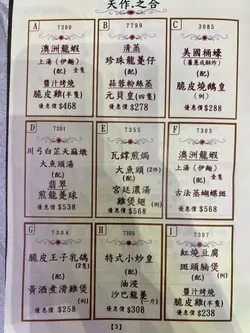 天作之合
A 7300
澳洲龍蝦
上湯(伊麵)
(配) 全隻
醬汁烤燒
脆皮雞(例)
優惠價$468
B 7799
清蒸
珍珠龍躉仔
(配)
蒜蓉粉絲蒸
元貝皇(四隻)
優惠價$278
C 3085
美國桶蠔
(配)
脆皮燒鵝皇
(例)
優惠價$288
D 7301
川弓白芷天麻燉
大魚頭湯
(配)
翡翠
煎龍躉球
優惠價$538
E 7355
瓦罉煎焗
大魚頭
(配)
宮廷濃湯
雞煲翅(例)
優惠價$568
F 7303
澳洲龍蝦
上湯(伊麵)
(配) 全隻
古法蒸蝴蝶斑
優惠價$568
G 7304
脆皮王子乳鴿
(配) (2隻)
黃酒煮滑雞煲
(例)
優惠價$258
H 7305
特式小炒皇
(配)
油浸
沙巴龍躉
(一斤)
優惠價$308
I 7307
紅燒豆腐
斑頭腩煲
(配) (例)
醬汁烤燒
脆皮雞(半隻)
優惠價$238
【3】